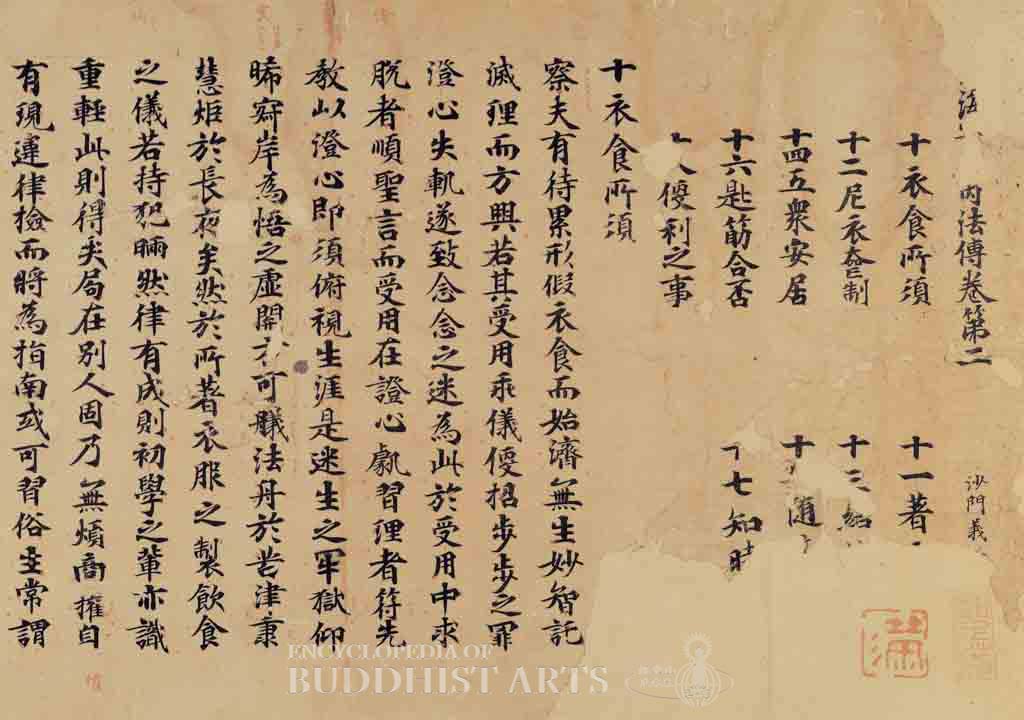 海 內法傳卷第二 沙門義
十衣食所須 十一著
十二尼衣喪制 十三 結
十四五衆安居 十 隨
十六匙筯合否 七知時
八便利之事
十衣食所須
察夫有待累形假衣食而始濟無生妙智託
滅理而方興若其受用乖儀便招步步之罪
澄心失軌遂致念念之迷為此於受用中求
脫者順聖言而受用在證心處習理者符先
教以澄心即須俯視生涯是迷生之牢獄仰
晞寂岸為悟之虛關方可艤法舟於苦津秉
慧炬於長夜矣然於所著衣服之製飲食
之儀若持犯昞然律有成則初學之輩亦識
重輕此則得失局在別人固乃無煩商搉自
有現違律檢而將為指南或可習俗生常謂
ENCYCLOPEDIA OF
BUDDHIST ARTS